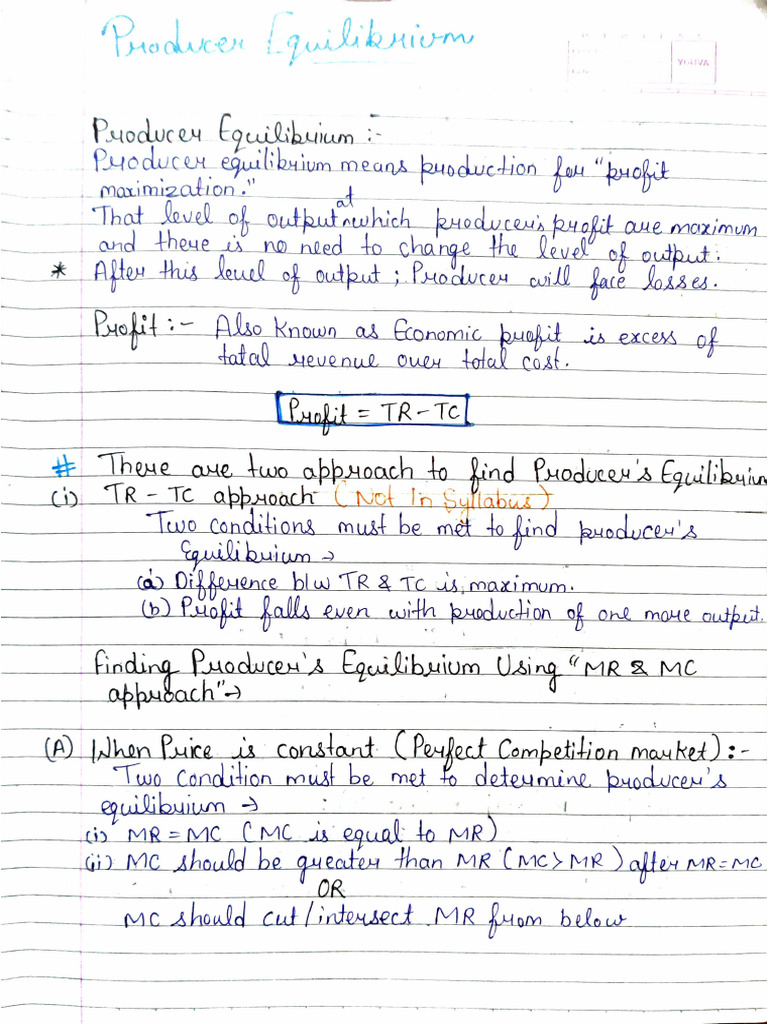 Producer Equilibrium
YOUVA
Producer Equilibrium :-
Producer equilibrium means production for "profit
maximization."
That level of output at which producer's profit are maximum
and there is no need to change the level of output.
* After this level of output ; Producer will face losses.
Profit :- Also Known as Economic profit is excess of
total revenue over total cost.
Profit = TR - TC
# There are two approach to find Producer's Equilibrium
(i) TR - TC approach (Not In Syllabus)
Two conditions must be met to find producer's
Equilibrium →
(a) Difference b/w TR & TC is maximum.
(b) Profit falls even with production of one more output.
Finding Producer's Equilibrium Using "MR & MC
approach" →
(A) When Price is constant (Perfect Competition market) :-
Two Condition must be met to determine producer's
equilibrium →
(i) MR = MC (MC is equal to MR)
(ii) MC should be greater than MR (MC > MR) after MR = MC
OR
MC should cut/intersect MR from below